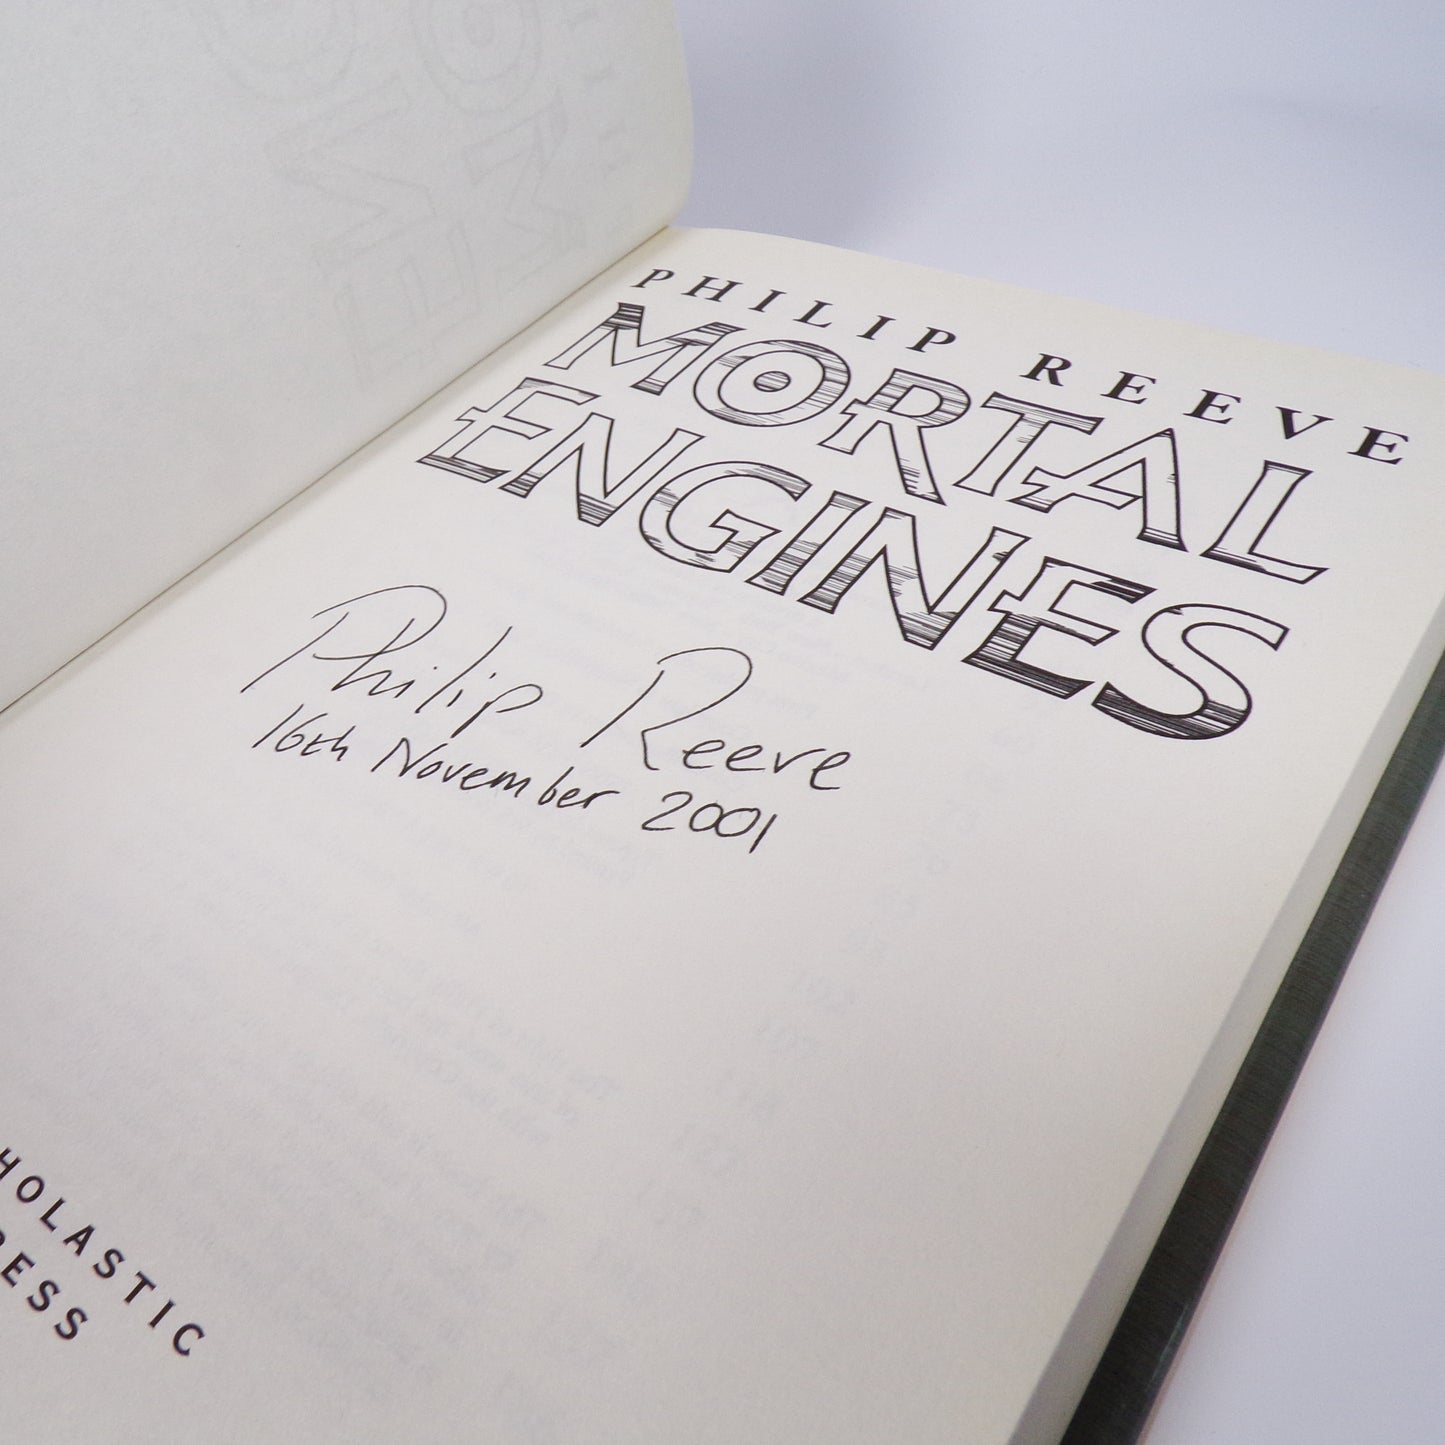 PHILIP REEVE
MORTAL
ENGINES
Philip Reeve
16th November 2001
HOLASTIC
RESS